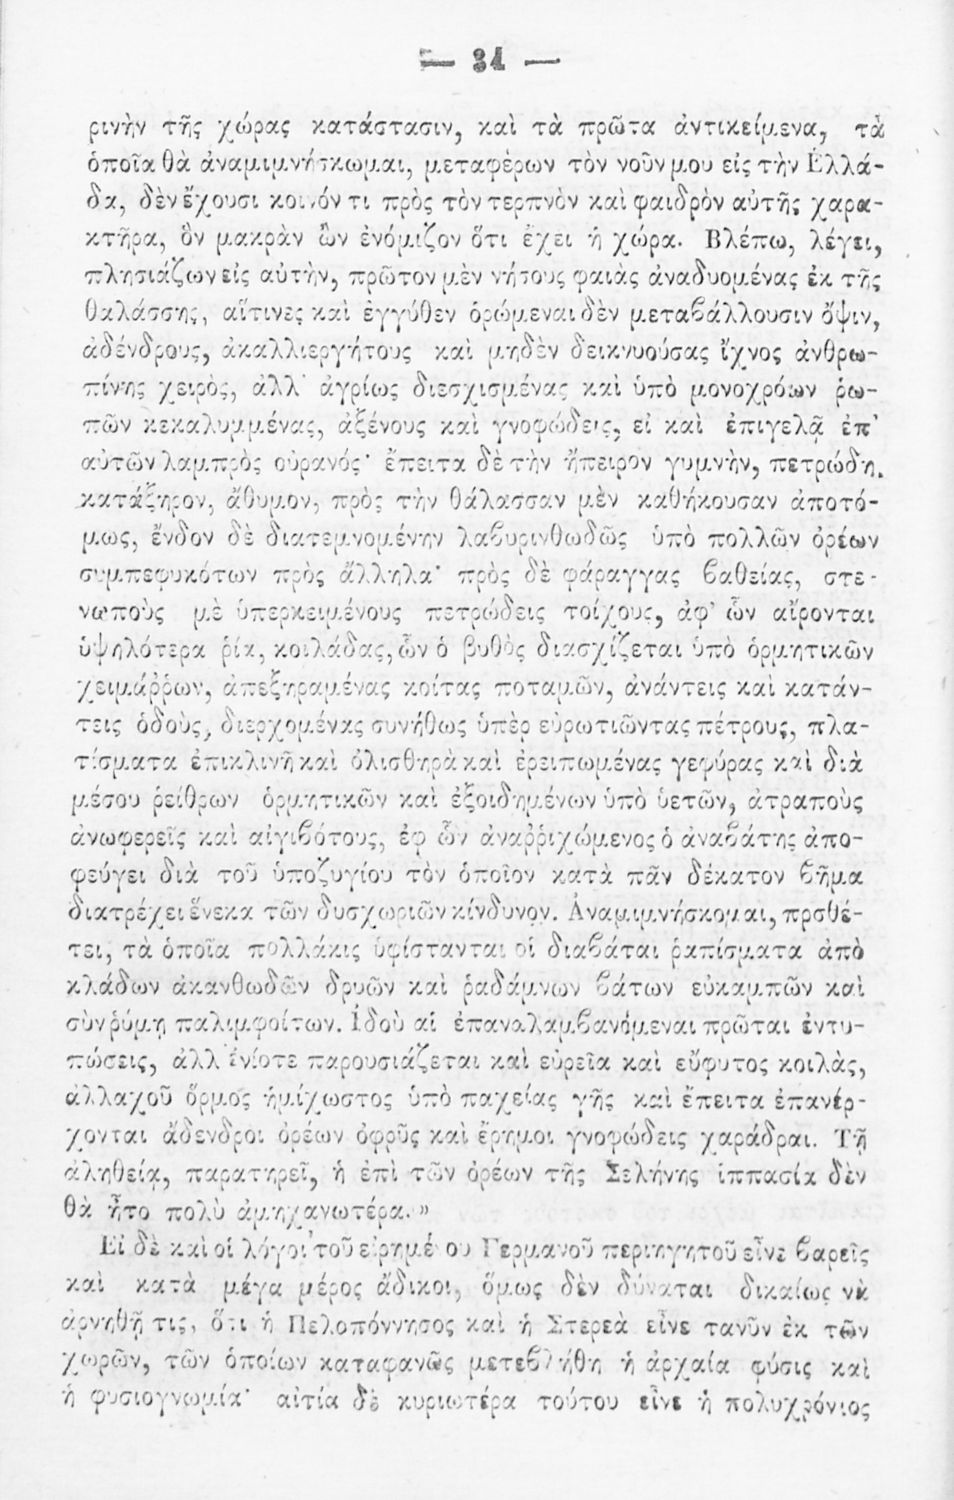 — 34 —
ρινὴν τῆς χώρας κατάστασιν, καὶ τὰ πρῶτα ἀντικείμενα, τὰ
ὁποῖα θὰ ἀναμιμνήσκωμαι, μεταφέρων τὸν νοῦν μου εἰς τὴν Ἑλλά-
δα, δὲν ἔχουσι κοινόν τι πρὸς τὸν τερπνὸν καὶ φαιδρὸν αὐτῆς χαρα-
κτῆρα, ὃν μακρὰν ὢν ἐνόμιζον ὅτι ἔχει ἡ χώρα. Βλέπω, λέγει,
πλησιάζων εἰς αὐτὴν, πρῶτον μὲν νήσους φαιὰς ἀναδυομένας ἐκ τῆς
θαλάσσης, αἵτινες καὶ ἐγγύθεν ὁρώμεναι δὲν μεταβάλλουσιν ὄψιν,
ἀδένδρους, ἀκαλλιεργήτους καὶ μηδὲν δεικνυούσας ἴχνος ἀνθρω-
πίνης χειρὸς, ἀλλ' ἀγρίως διεσχισμένας καὶ ὑπὸ μονοχρόων ῥω-
πῶν κεκαλυμμένας, ἀξένους καὶ γνοφώδεις, εἰ καὶ ἐπιγελᾷ ἐπ'
αὐτῶν λαμπρὸς οὐρανός· ἔπειτα δὲ τὴν ἤπειρον γυμνὴν, πετρώδη,
κατάξηρον, ἄθυμον, πρὸς τὴν θάλασσαν μὲν καθήκουσαν ἀποτό-
μως, ἔνδον δὲ διατεμνομένην λαβυρινθωδῶς ὑπὸ πολλῶν ὀρέων
συμπεφυκότων πρὸς ἄλληλα· πρὸς δὲ φάραγγας βαθείας, στε-
νωποὺς μὲ ὑπερκειμένους πετρώδεις τοίχους, ἀφ' ὧν αἴρονται
ὑψηλότερα ῥία, κοιλάδας, ὧν ὁ βυθὸς διασχίζεται ὑπὸ ὁρμητικῶν
χειμάῤῥων, ἀπεξηραμένας κοίτας ποταμῶν, ἀνάντεις καὶ κατάν-
τεις ὁδοὺς, διερχομένας συνήθως ὑπὲρ εὐρωτιῶντας πέτρους, πλα-
τίσματα ἐπικλινῆ καὶ ὀλισθηρὰ καὶ ἐρειπωμένας γεφύρας καὶ διὰ
μέσου ῥείθρων ὁρμητικῶν καὶ ἐξοιδημένων ὑπὸ ὑετῶν, ἀτραποὺς
ἀνωφερεῖς καὶ αἰγιβότους, ἐφ ὧν ἀναῤῥιχώμενος ὁ ἀναβάτης ἀπο-
φεύγει διὰ τοῦ ὑποζυγίου τὸν ὁποῖον κατὰ πᾶν δέκατον βῆμα
διατρέχει ἕνεκα τῶν δυσχωριῶν κίνδυνον. Ἀναμιμνήσκομαι, προθέ-
τει, τὰ ὁποῖα πολλάκις ὑφίστανται οἱ διαβάται ῥαπίσματα ἀπὸ
κλάδων ἀκανθωδῶν δρυῶν καὶ ῥαδάμνων βάτων εὐκαμπῶν καὶ
σὺν ῥύμη παλιμφοίτων. Ἰδοὺ αἱ ἐπαναλαμβανόμεναι πρῶται ἐντυ-
πώσεις, ἀλλ' ἐνίοτε παρουσιάζεται καὶ εὐρεῖα καὶ εὔφυτος κοιλὰς,
ἀλλαχοῦ ὅρμος ἡμίχωστος ὑπὸ παχείας γῆς καὶ ἔπειτα ἐπανέρ-
χονται ἄδενδροι ὀρέων ὀφρῦς καὶ ἔρημοι γνοφώδεις χαράδραι. Τῇ
ἀληθείᾳ, παρατηρεῖ, ἡ ἐπὶ τῶν ὀρέων τῆς Σελήνης ἱππασία δὲν
θὰ ἦτο πολὺ ἀμηχανωτέρα.»
Εἰ δὲ καὶ οἱ λόγοι τοῦ εἰρημένου Γερμανοῦ περιηγητοῦ εἶνε βαρεῖς
καὶ κατὰ μέγα μέρος ἄδικοι, ὅμως δὲν δύναται δικαίως νὰ
ἀρνηθῇ τις, ὅτι ἡ Πελοπόννησος καὶ ἡ Στερεὰ εἶνε τανῦν ἐκ τῶν
χωρῶν, τῶν ὁποίων καταφανῶς μετεβλήθη ἡ ἀρχαία φύσις καὶ
ἡ φυσιογνωμία· αἰτία δὲ κυριωτέρα τούτου εἶνε ἡ πολυχρόνιος